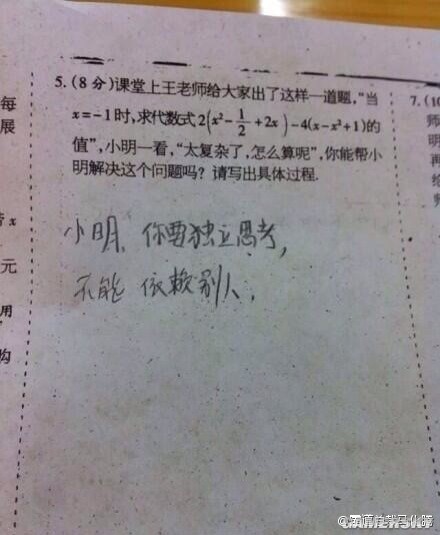 每
展
5.(8分)课堂上王老师给大家出了这样一道题,“当
x=-1时,求代数式2(x²-1/2+2x)-4(x-x²+1)的
值”,小明一看,“太复杂了,怎么算呢”,你能帮小
明解决这个问题吗？请写出具体过程.
小明、你要独立思考,
不能 依赖别人.
x
元
用
购
7.(10
师
明
再
给